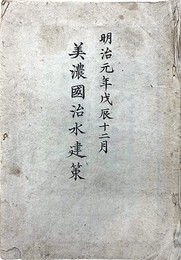 明治元年戊辰十二月
美濃國治水建策